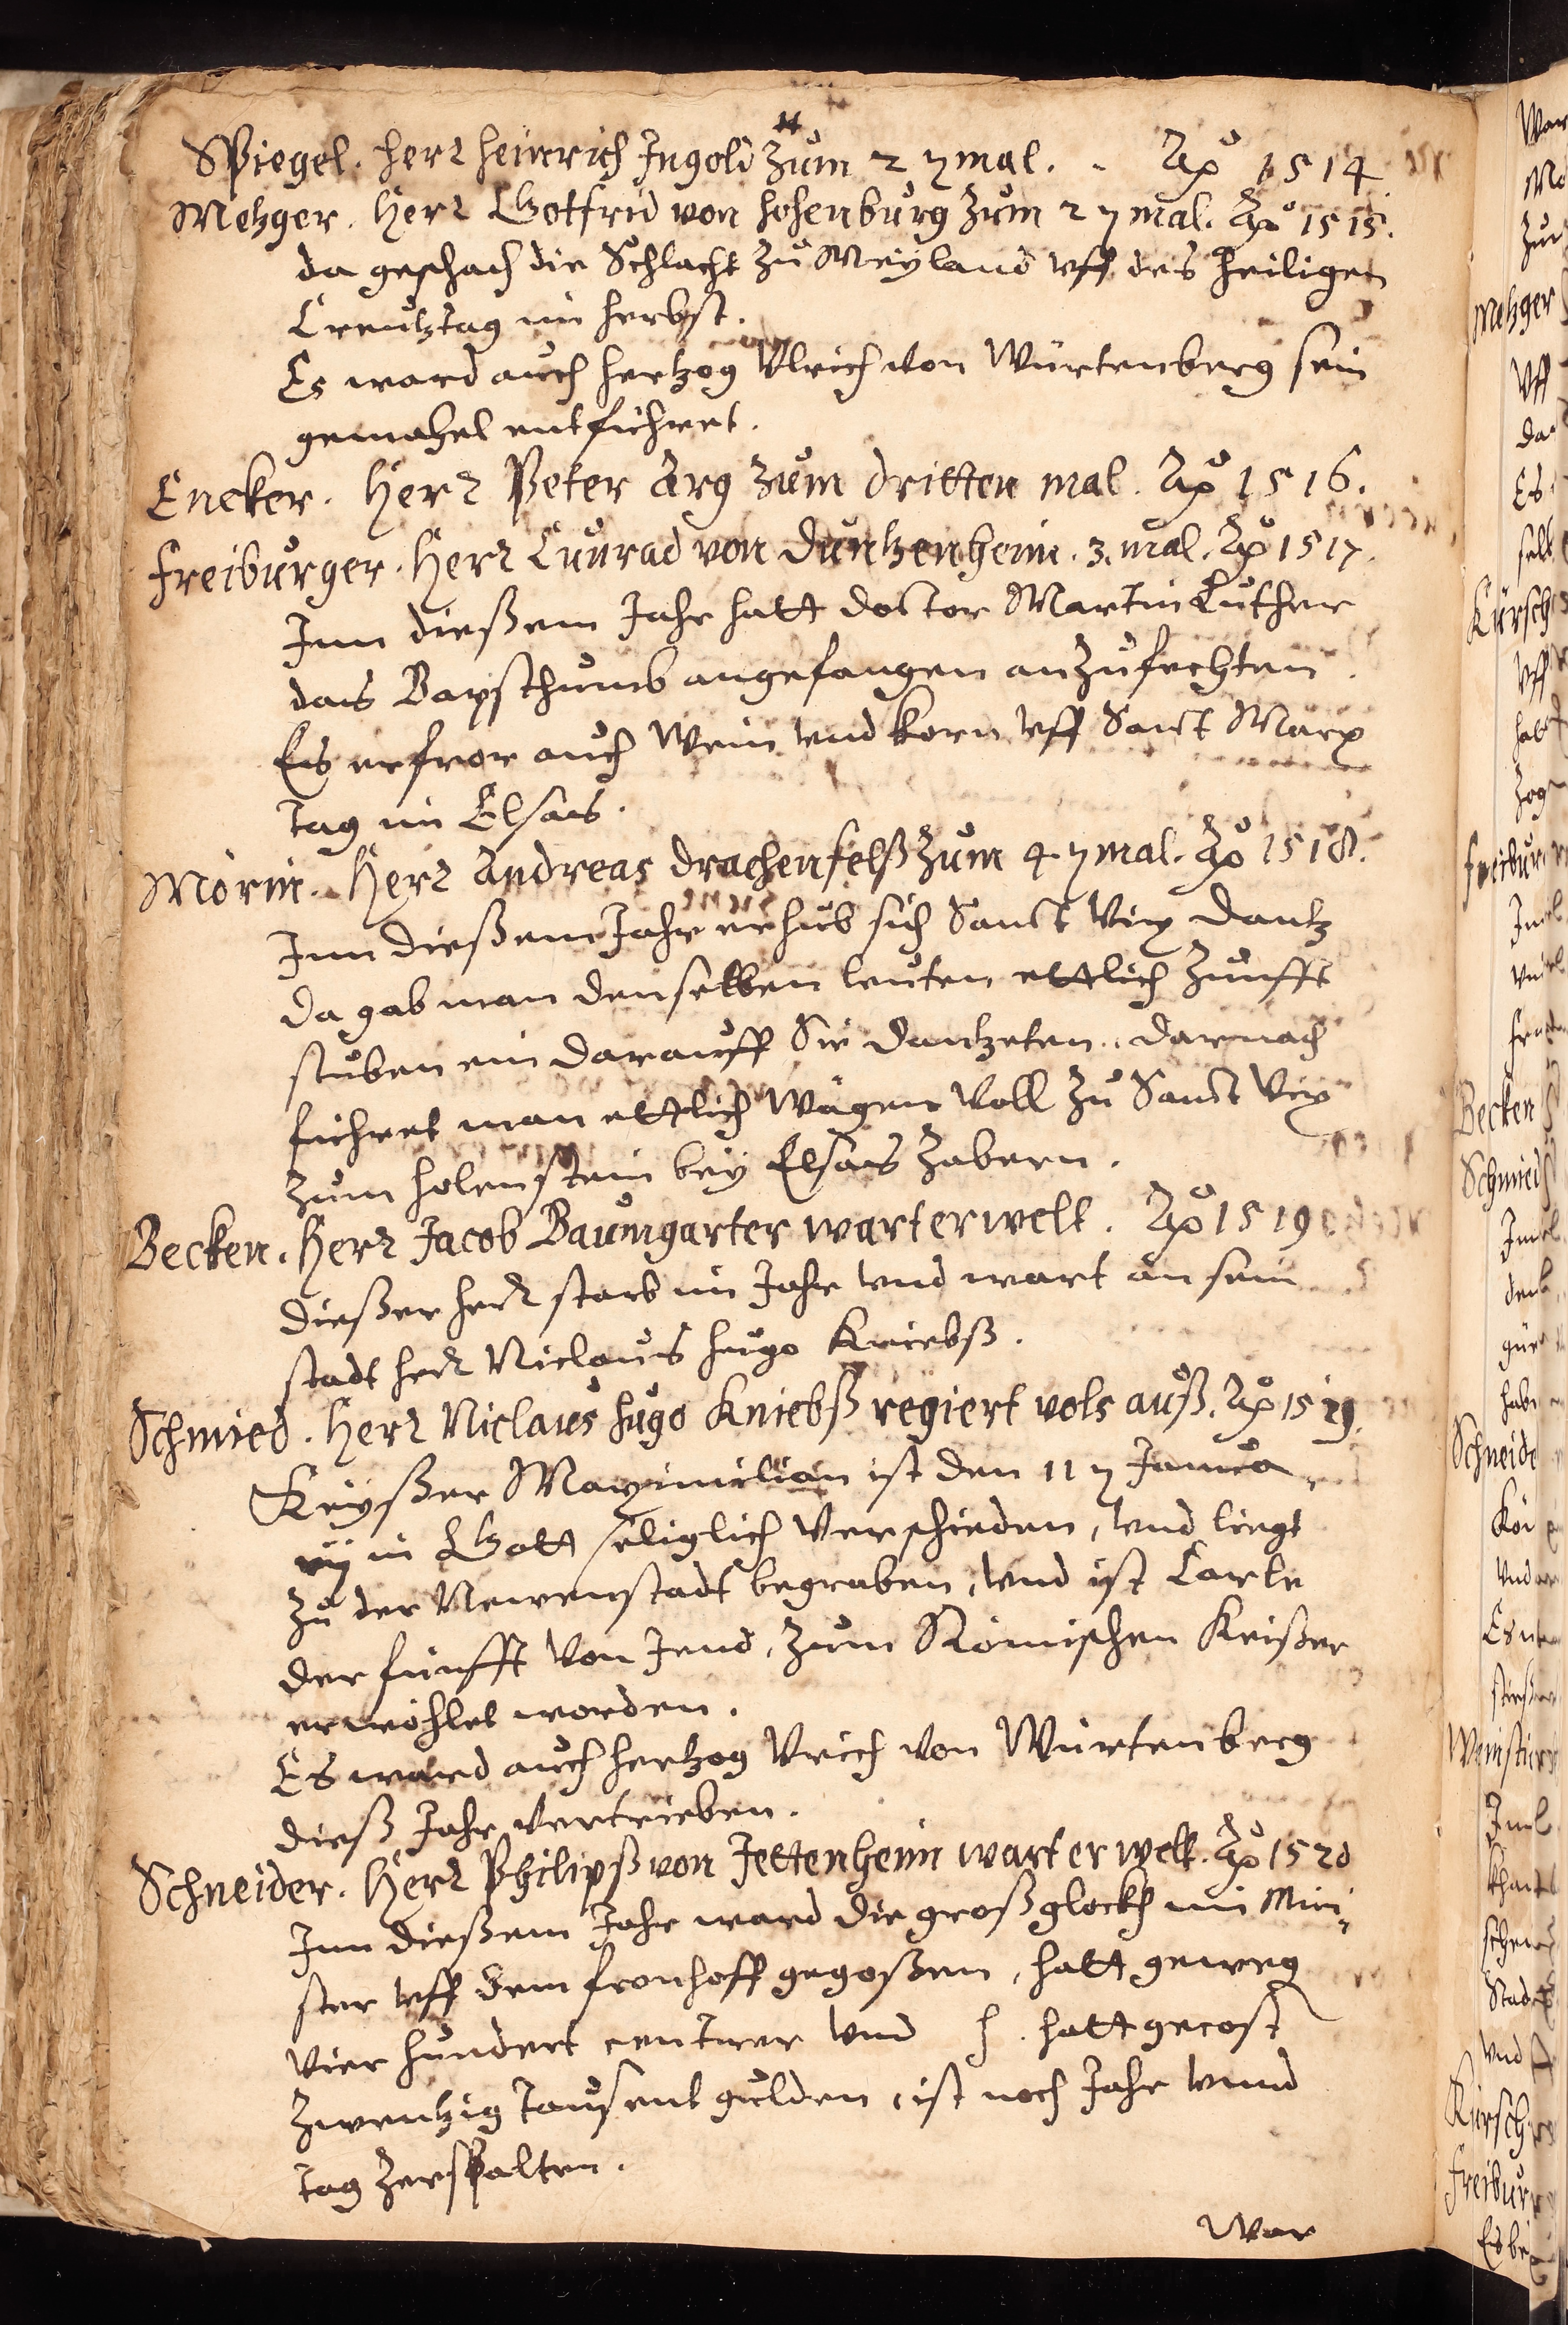 Spiegel. Herr Heinrich Ingold zum 2 ten mal. Aō 1514
Metzger. Herr Gotfrid von Hohenburg zum 2 ten mal. Aō 1515.
da geschach die Schlacht zu Meyland uff des heiligen
Creutztag im herbst.
Es ward auch hertzog Ulrich von Würtenberg sein
gemahel entführet.
Encker. Herr Peter Arg zum dritten mal. Aō 1516.
Freiburger. Herr Cunrad von Duntzenheim. 3. mal. Aō 1517.
Inn dießem Jahr hatt doctor Martin Luther
das Bapsthumb angefangen anzufechten.
Es erfror auch Wein und korn uff Sanct Marx
tag im Elsas.
Mörin. Herr Andreas Drachenfelß zum 4 ten mal. Aō 1518.
Inn dießem Jahr erhub sich Sanct Vix dantz
da gab man denselben leuten ettlich Zunfft
stuben ein darauff Sie dantzeten. darnach
führet man ettlich wägen voll zu Sanct Vix
zum holenstein bey Elsas Zabern.
Becken. Herr Jacob Baumgarter wart erwelt. Aō 1519
Dießer herr starb im Jahr und wart an sein
stadt herr Niclaus hugo Kniebß.
Schmied. Herr Niclaus hugo Kniebß regiert vols auß. Aō 1519.
Keyßer Maximilian ist den 11 ten Janua
rij in Gott seliglich verschieden, und liegt
zu der Newenstadt begraben, und ist Carle
der fünfft von Jend, zum Römischen Keißer
erwöhlet worden.
Es ward auch hertzog Vrich von Würtenberg
dieß Jahr vertrieben.
Schneider. Herr Philipß von Jettenheim wart erwelt. Aō 1520
Inn dießem Jahr ward die groß glockh im Mün-
ster uff dem fronhoff gegoßen, hatt geweg
vier hundert centner und h. hatt gecost
zwentzig tausent gulden, ist noch Jahr unnd
tag zerspalten.
War